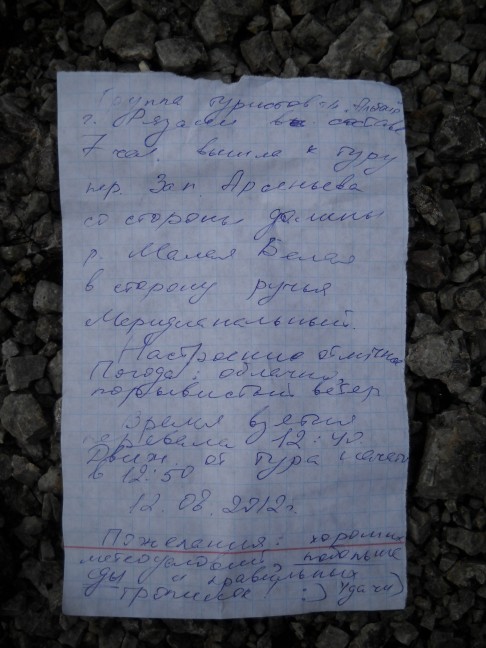 Группа туристов
г. Рязани в составе
7 чел. вышла к туру
пер. Зап. Арсеньева
со стороны долины
р. Малая Белая
в сторону ручья
Меридианальный.
Настроение отличное
Погода: облачно
порывистый ветер
Время взятия
перевала 12:40.
Движ. от тура начато
в 12:50
12.08.2012г.
Пожелания: хороших
метеоусловий, побольше
еды и правильных
тропинок :) Удачи)